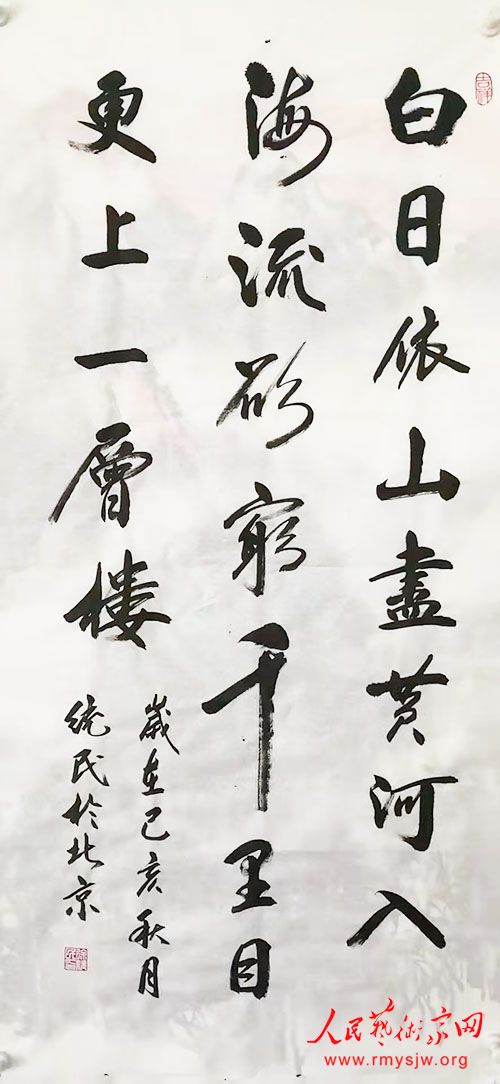 白日依山盡黄河入
海流欲窮千里目
更上一層樓
歲在己亥秋月
統民於北京
吉祥
人民藝術家网
www.rmysjw.org